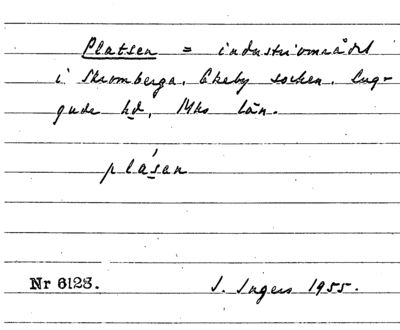 Platsen = industriområdet
i Skromberga, Ekeby socken, Lug-
gude hd, Mhs län.
plásen
Nr 6128. I. Ingers 1955.